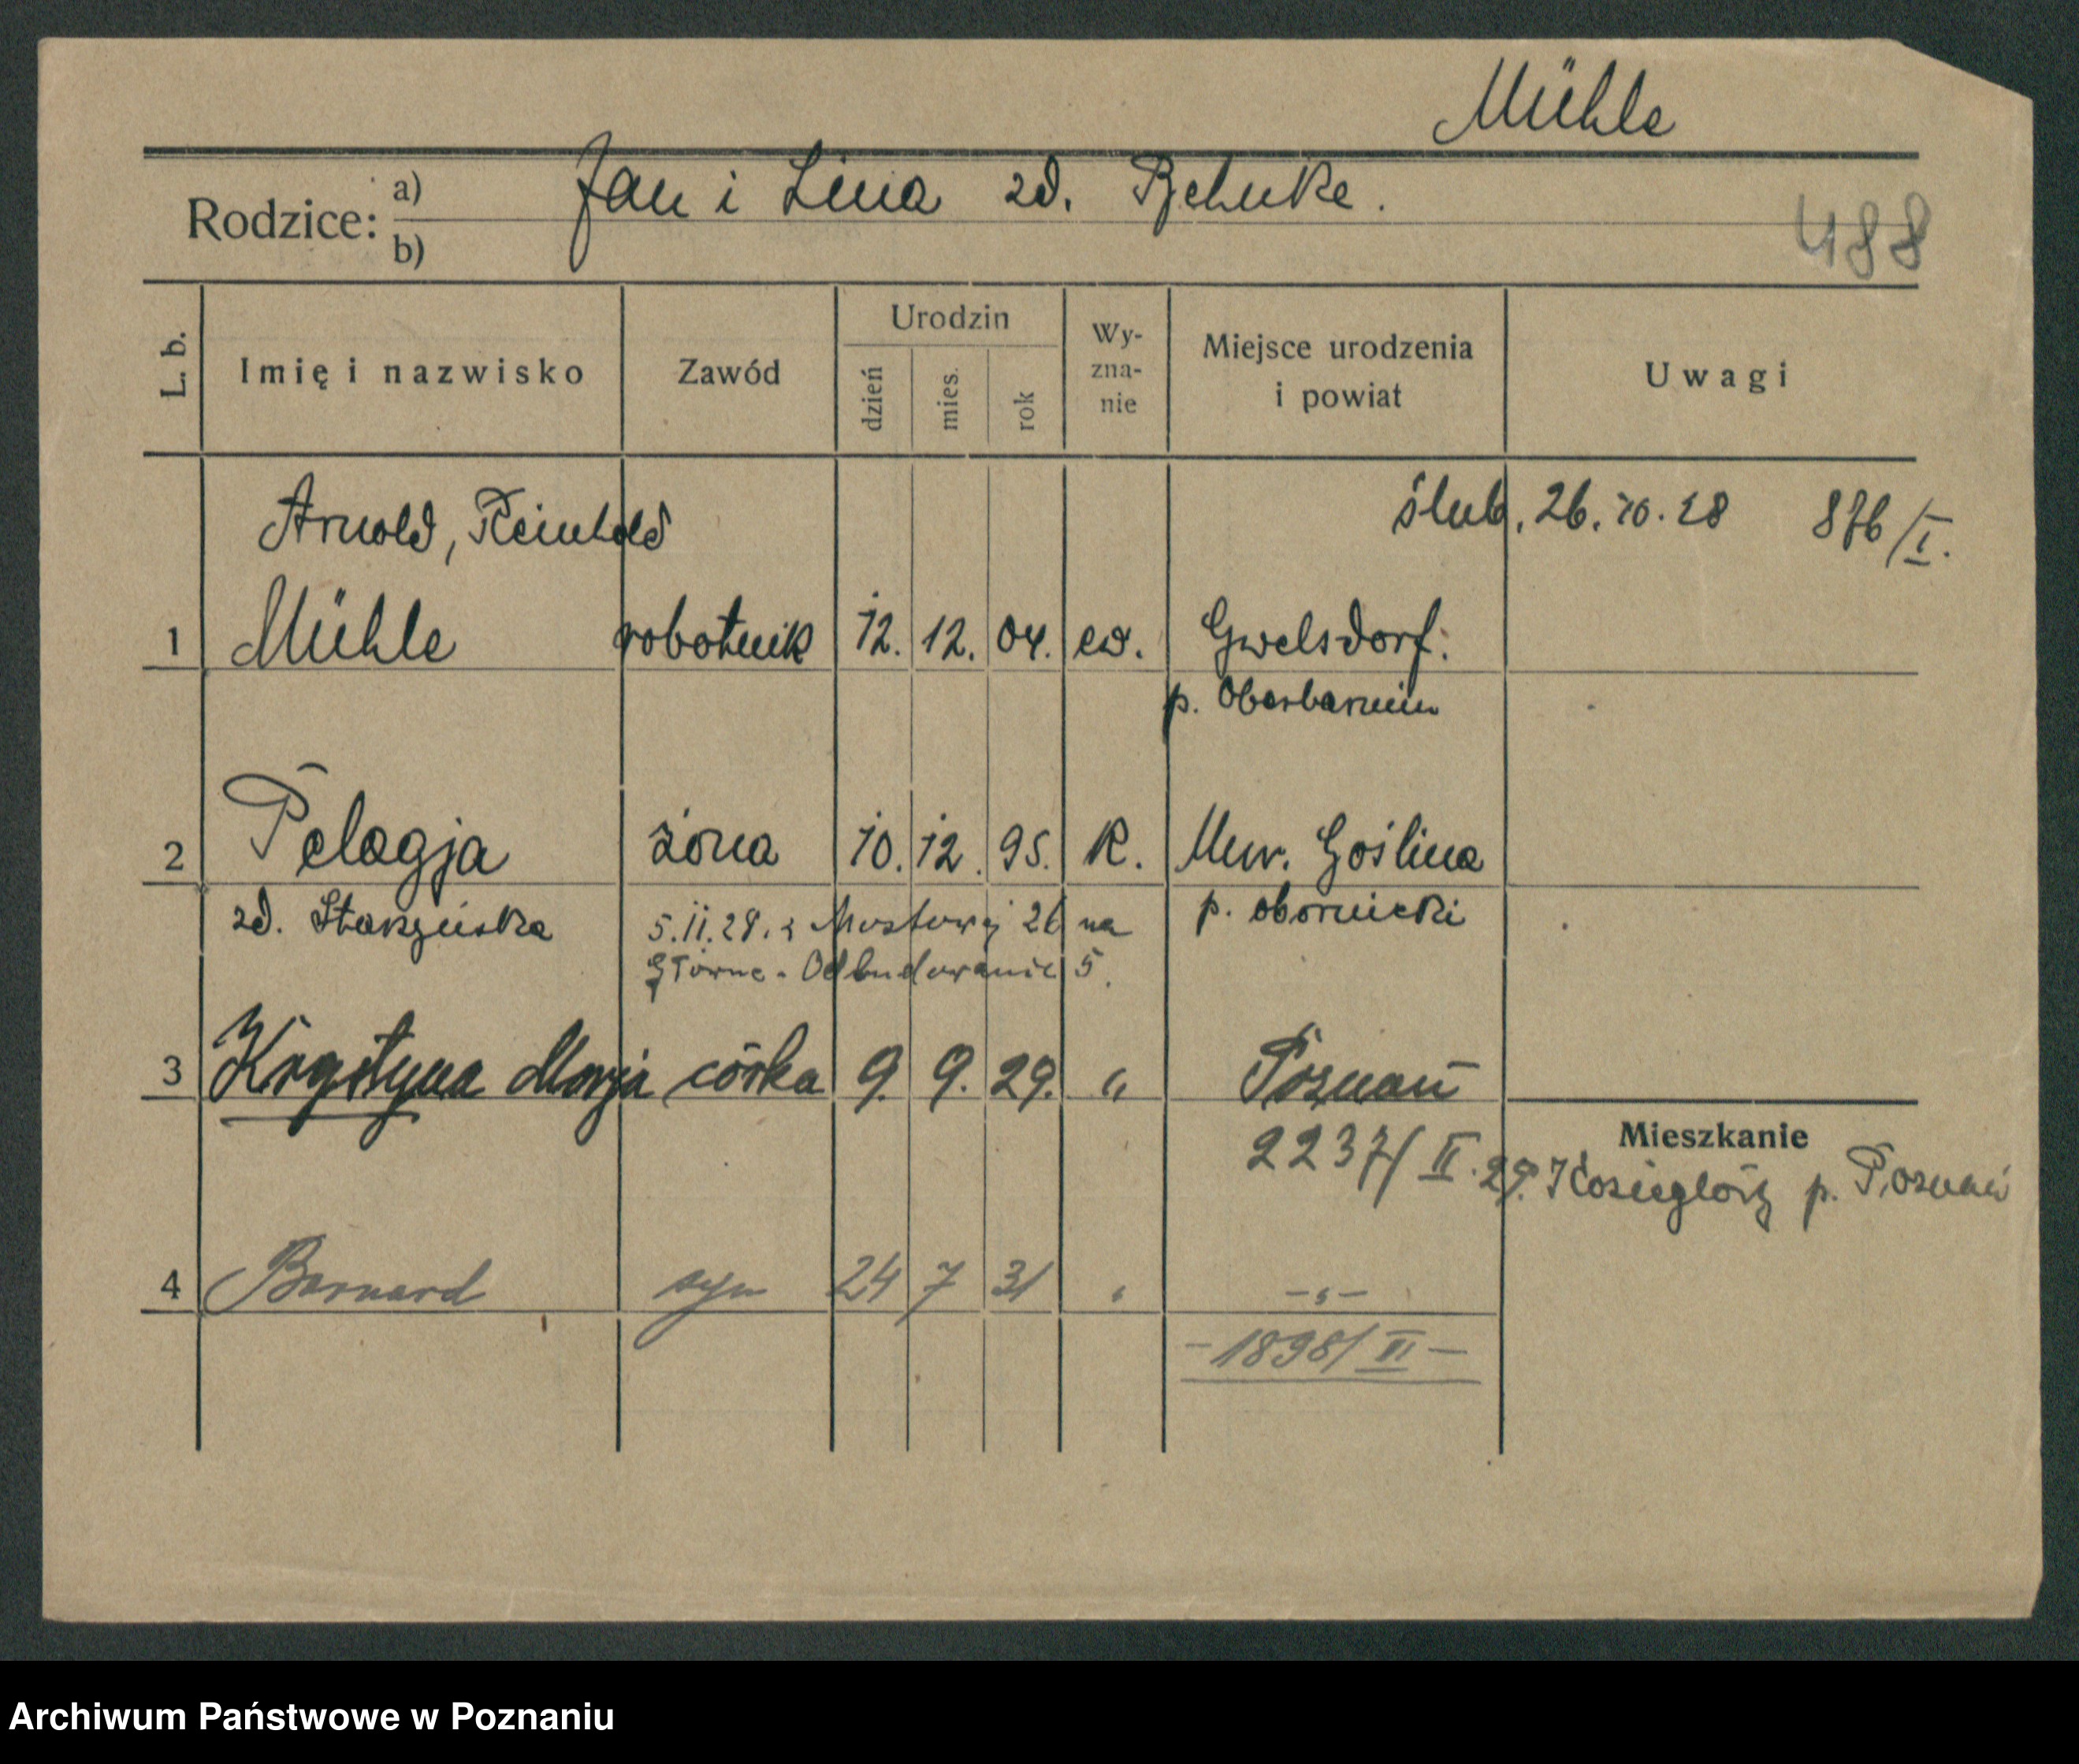 Mühle
Rodzice: a) Jan i Lina zd. Behnke.
b)
488
L. b. Imię i nazwisko Zawód Urodzin dzień mies. rok Wy-zna-nie Miejsce urodzenia i powiat Uwagi
Arnold, Reinhold ślub, 26. 10. 28 876/I.
1 Mühle robotnik 12. 12. 04. ew. Gwelsdorf.
p. Oberbarnim
2 Pelagja żona 10. 12. 95. K. Mur. Goślina
zd. 5.11.28. z Mostowej 26 na p. obornicki
Główne - Odbudowanie 5.
3 Krystyna Marja córka 9. 9. 29. " Poznań
Mieszkanie
2237/II. 29. Kozięgłowy p. Poznań
4 Bernard syn 24 7 31 " -"-
- 1898/II -
Archiwum Państwowe w Poznaniu